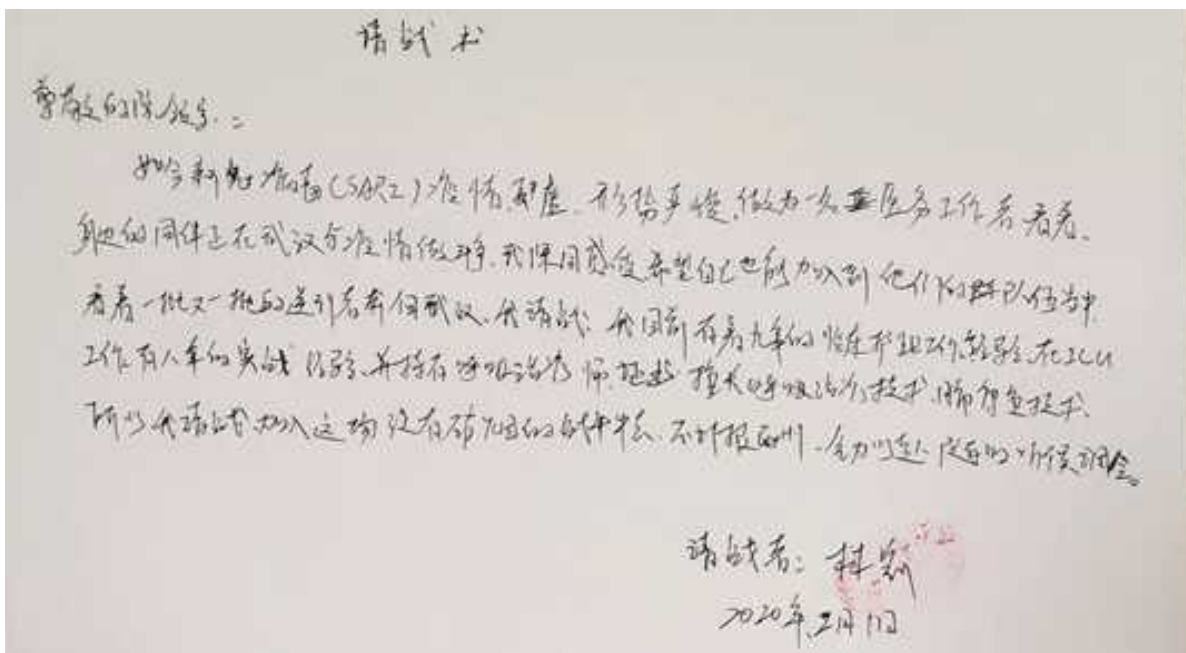 请战书
尊敬的院领导：
如今新冠病毒(SARI)疫情严重,形势严峻,做为一名医务工作者看着
身边的同伴正在武汉与疫情做斗争,我深同感受希望自己也能加入到他们的队伍当中
看着一批又一批的逆行者奔向武汉,我请战:我目前有着九年的临床护理工作经验,在ICU
工作有八年的实战经验,并持有呼吸治疗师证书 擅长呼吸治疗技术,肺康复技术
所以我请战加入这场没有硝烟的战争,不计报酬
请战者:林
2020年2月11日